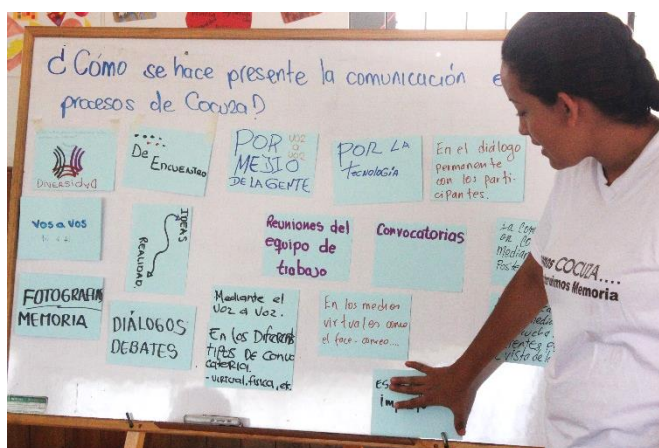 ¿Cómo se hace presente la comunicación e
procesos de Cocuza?
DIVERSIDAD
De
ENCUENTRO
POR VOZ
MEDIO a
DE LA GENTE VOZ
POR LA
TECNOLOGÍA
En el diálogo
permanente
con los parti-
cipantes.
Vos a Vos
IDEAS
REALIDAD
Reuniones del
equipo de
trabajo
Convocatorias
FOTOGRAFIAS
MEMORIA
DIÁLOGOS
DEBATES
Mediante el
Voz a Voz.
En los Diferentes
TIPOS DE CONVO
CATORIA.
- virtual, física, etc
En los medios
virtuales como
el face-correo...
COCUZA....
Memoria